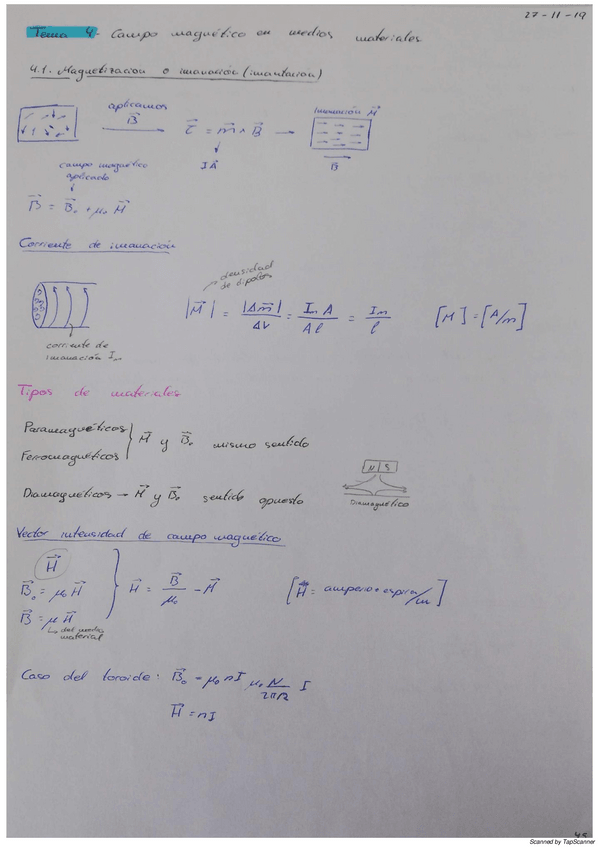 27-11-19
Tema 4.- Campo magnético en medios materiales
4.1. Magnetización o imanación (imantación)
aplicamos B⃗
τ⃗ = m⃗ ∧ B⃗
I A⃗
imanación M⃗
B⃗
campo magnético aplicado
B⃗ = B⃗₀ + μ₀ M⃗
Corriente de imanación
densidad de dipolos
|M⃗| = |Δm⃗| / ΔV = Iₘ A / A l = Iₘ / l [M] = [A/m]
corriente de imanación Iₘ
Tipos de materiales
Paramagnéticos
Ferromagnéticos } M⃗ y B⃗₀ mismo sentido
N S
Diamagnéticos → M⃗ y B⃗₀ sentido opuesto
Diamagnético
Vector intensidad de campo magnético
H⃗
B⃗₀ = μ₀ H⃗
B⃗ = μ H⃗
del medio material
H⃗ = B⃗ / μ₀ - M⃗
[H⃗ = amperio · espira / m]
Caso del toroide: B⃗₀ = μ₀ n I μ₀ N / 2πR I
H⃗ = n I
Scanned by TapScanner